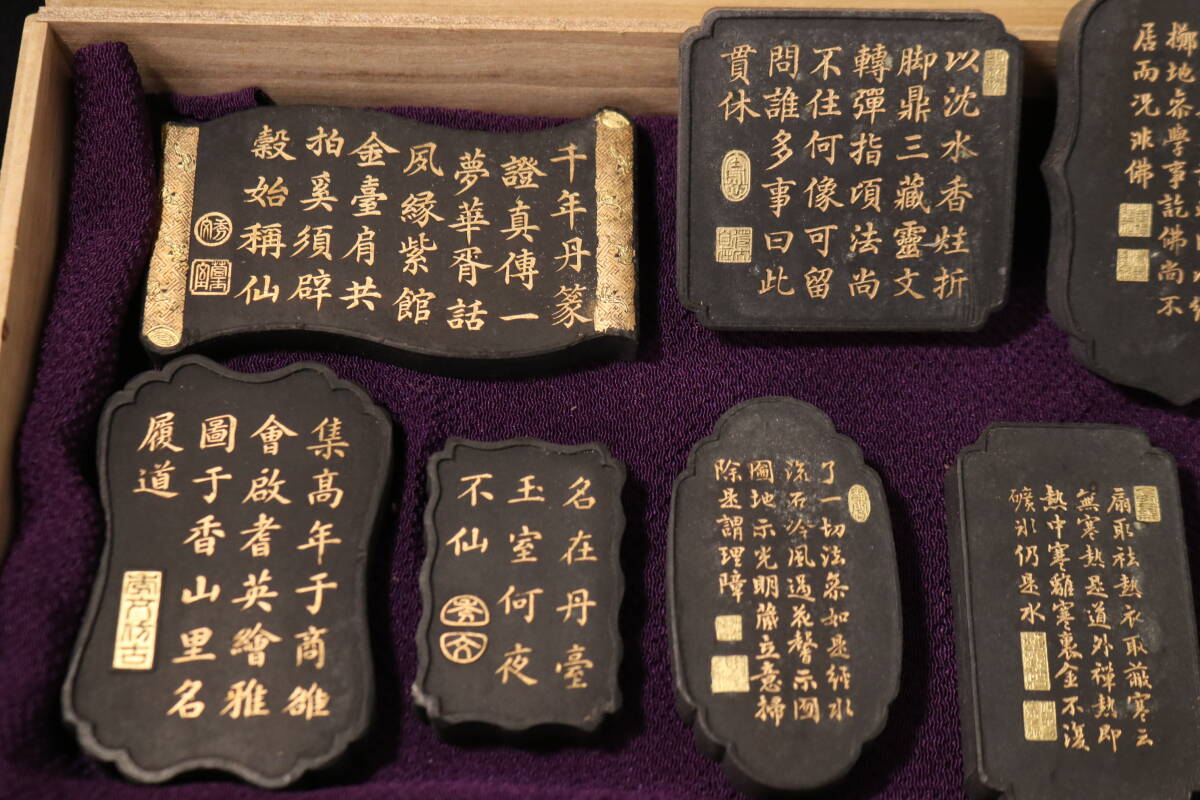 千年丹篆
證真傳一
夢華胥話
夙緣紫館
金臺肩共
拍奚須辟
穀始稱仙
以沈水香炷折
脚鼎三藏靈文
轉彈指頃法尚
不住何像可留
問誰多事曰此
貫休
擲地
參學事訖佛尚不
居而況非佛
集高年于商雒
會啟耆英繪雅
圖于香山里名
履道
名在丹臺
玉室何夜
不仙
了一切法無如是經水
流石冷風過花馨示圓
圖地示光明藏立意掃
除是謂理障
扇取祛熱衣取蔽寒云
無寒熱是道外禪熱即
熱中寒離寒裏金不復
礦冰仍是水